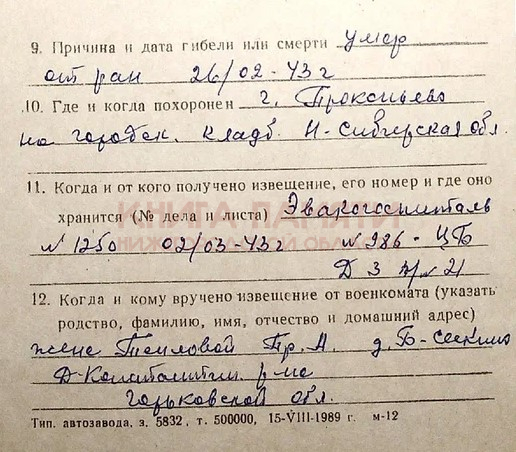 9. Причина и дата гибели или смерти умер
от ран 26/02-43 г
10. Где и когда похоронен г. Прокопьево
на городск. кладб. Н-Сибирская обл.
11. Когда и от кого получено извещение, его номер и где оно
хранится (№ дела и листа) Эвакогоспиталь
КНИГА ПАМЯТИ
N 1250 02/03-43 г N 986-ЦБ
Д 3 л/N 21
12. Когда и кому вручено извещение от военкомата (указать
родство, фамилию, имя, отчество и домашний адрес)
жене Пр. А. д. Б-
Д-Константин. р-на
Горьковской обл.
Тип. автозавода, з. 5832, т. 500000, 15-VIII-1989 г. м-12